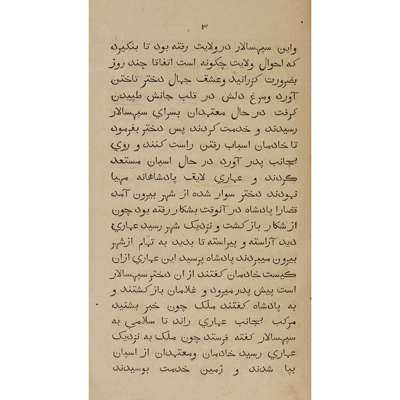 ٣
واین سپهسالار درولایت رفته بود تا بنگیرد
که احوال ولایت چکونه است اتفاقا چند روز
بضرورت کزرانید وعشق جمال دختر تاختن
آورد ومرغ دلش در قلب جانش طپیدن
کرفت در حال معتمدان بسرای سپهسالار
رسیدند و خدمت کردند پس دختر بفرمود
تا خادمان اسباب رفتن راست کنند و روی
بجانب پدر آورد در حال اسبان مستعد
کردند و عماری لایق پادشاهانه مهیا
نمودند دختر سوار شده از شهر بیرون آمد
قضارا پادشاه درآنوقت بشکار رفته بود چون
از شکار بازکشت و نزدیک شهر رسید عماری
دید آراسته و پیراسته تا بدید به تمام ازشهر
بیرون میبردند پادشاه پرسید این عماری ازان
کیست خادمان کفتند از ان دختر سپهسالار
است پیش پدر میرود و غلامان بازکشتند و
به پادشاه کفتند ملک چون خبر بشنید
مرکب بجانب عماری راند تا سلامی به
سپهسالار کفته فرستد چون ملک به نزدیک
عماری رسید خادمان ومعتمدان از اسبان
پیا شدند و زمین خدمت بوسیدند